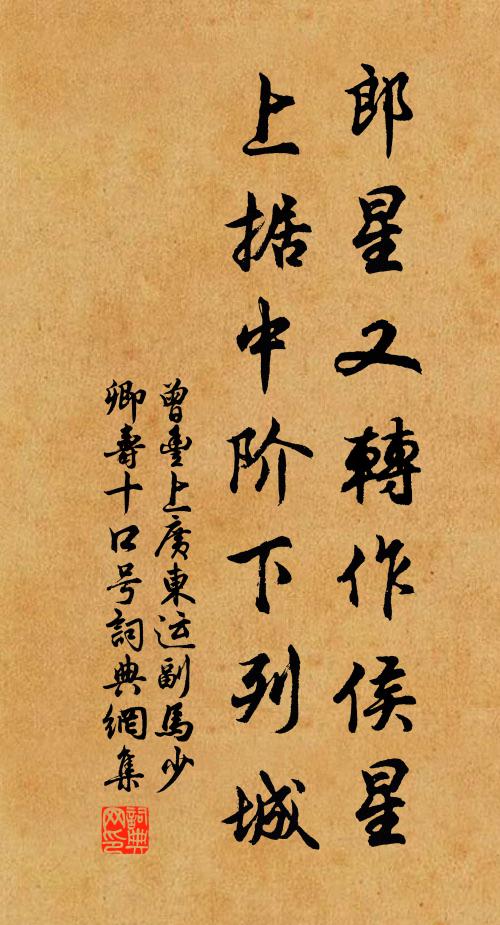 郎星又轉作侯星
上据中阶下列城
曾豊上廣東运副馬少
卿壽十口号詞典網集
詞典网印